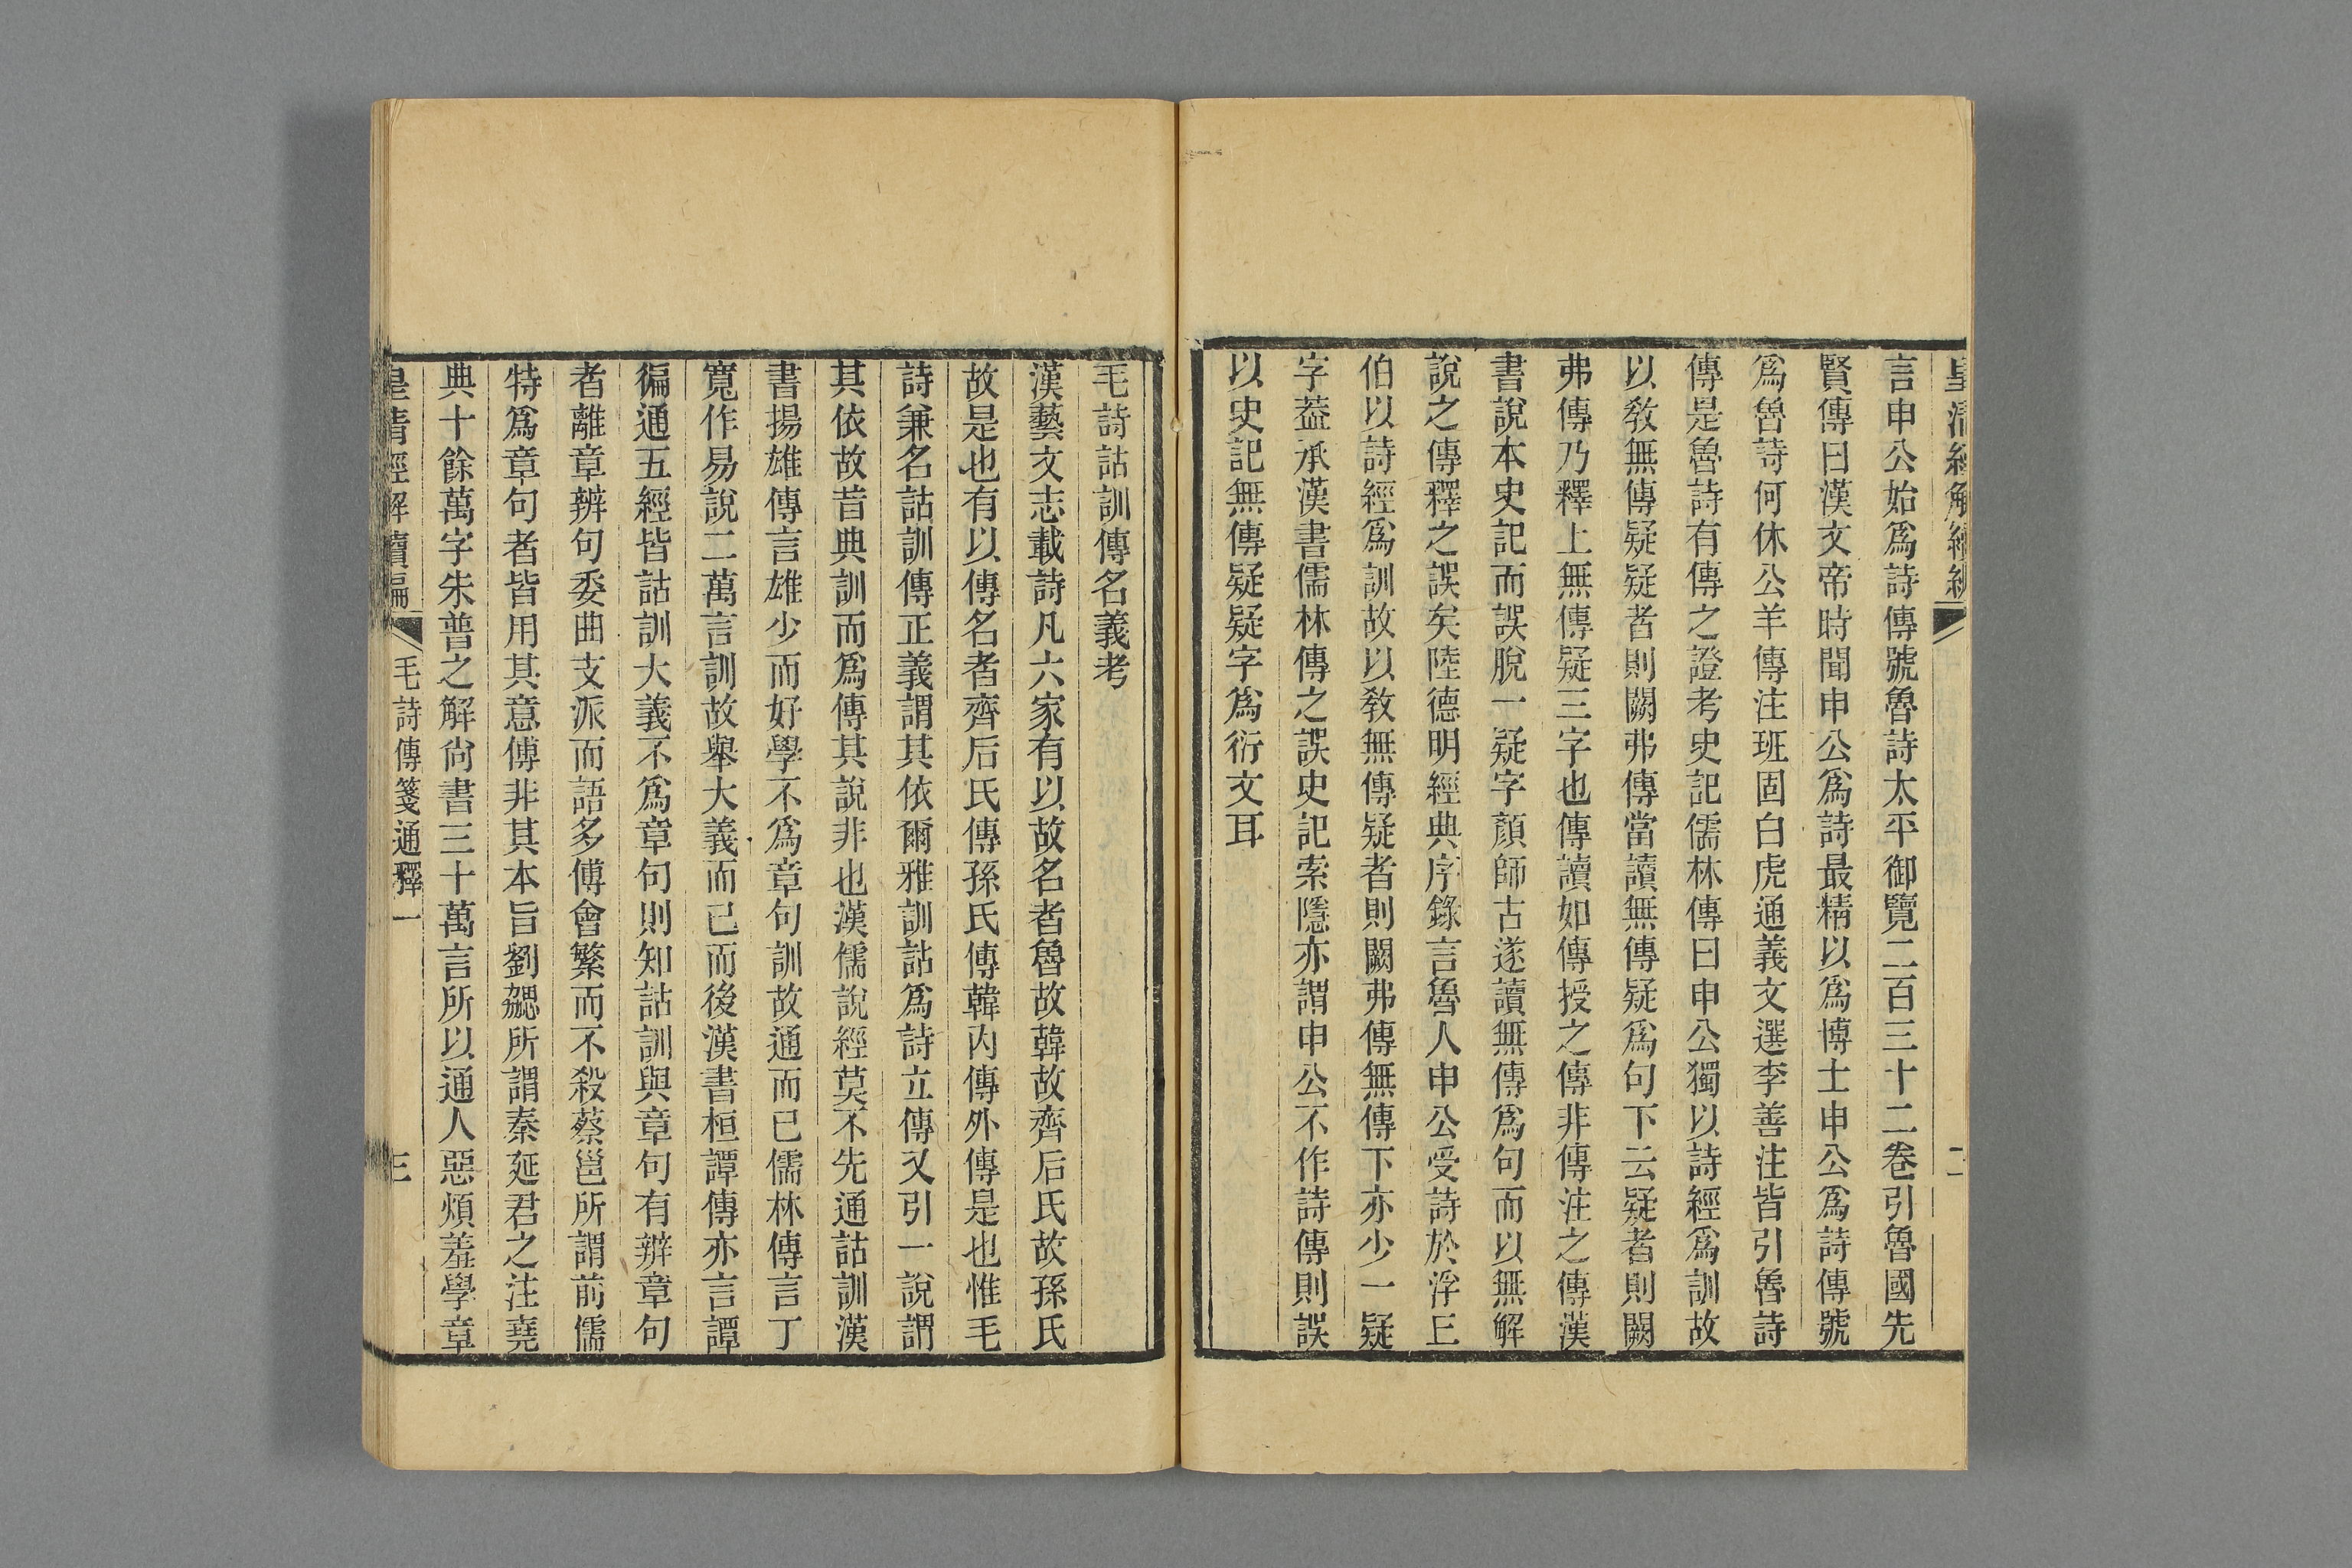 言申公始爲詩傳號魯詩太平御覽二百三十二卷引魯國先
賢傳曰漢文帝時聞申公爲詩最精以爲博士申公爲詩傳號
爲魯詩何休公羊傳注班固白虎通義文選李善注皆引魯詩
傳是魯詩有傳之證考史記儒林傳曰申公獨以詩經爲訓故
以敎無傳疑疑者則闕弗傳當讀無傳疑爲句下云疑者則闕
弗傳乃釋上無傳疑三字也傳讀如傳授之傳非傳注之傳漢
書說本史記而誤脫一疑字顏師古遂讀無傳爲句而以無解
說之傳釋之誤矣陸德明經典序錄言魯人申公受詩於浮丘
伯以詩經爲訓故以敎無傳疑者則闕弗傳無傳下亦少一疑
字葢承漢書儒林傳之誤史記索隱亦謂申公不作詩傳則誤
以史記無傳疑疑字爲衍文耳
毛詩詁訓傳名義考
漢藝文志載詩凡六家有以故名者魯故韓故齊后氏故孫氏
故是也有以傳名者齊后氏傳孫氏傳韓內傳外傳是也惟毛
詩兼名詁訓傳正義謂其依爾雅訓詁爲詩立傳又引一說謂
其依故昔典訓而爲傳其說非也漢儒說經莫不先通詁訓漢
書揚雄傳言雄少而好學不爲章句訓故通而已儒林傳言丁
寬作易說二萬言訓故舉大義而已而後漢書桓譚傳亦言譚
徧通五經皆詁訓大義不爲章句則知詁訓與章句有辨章句
者離章辨句委曲支派而語多傅會繁而不殺蔡邕所謂前儒
特爲章句者皆用其意傅非其本旨劉勰所謂秦延君之注堯
典十餘萬字朱普之解尙書三十萬言所以通人惡煩羞學章
皇淸經解續編 毛詩傳箋通釋一 三